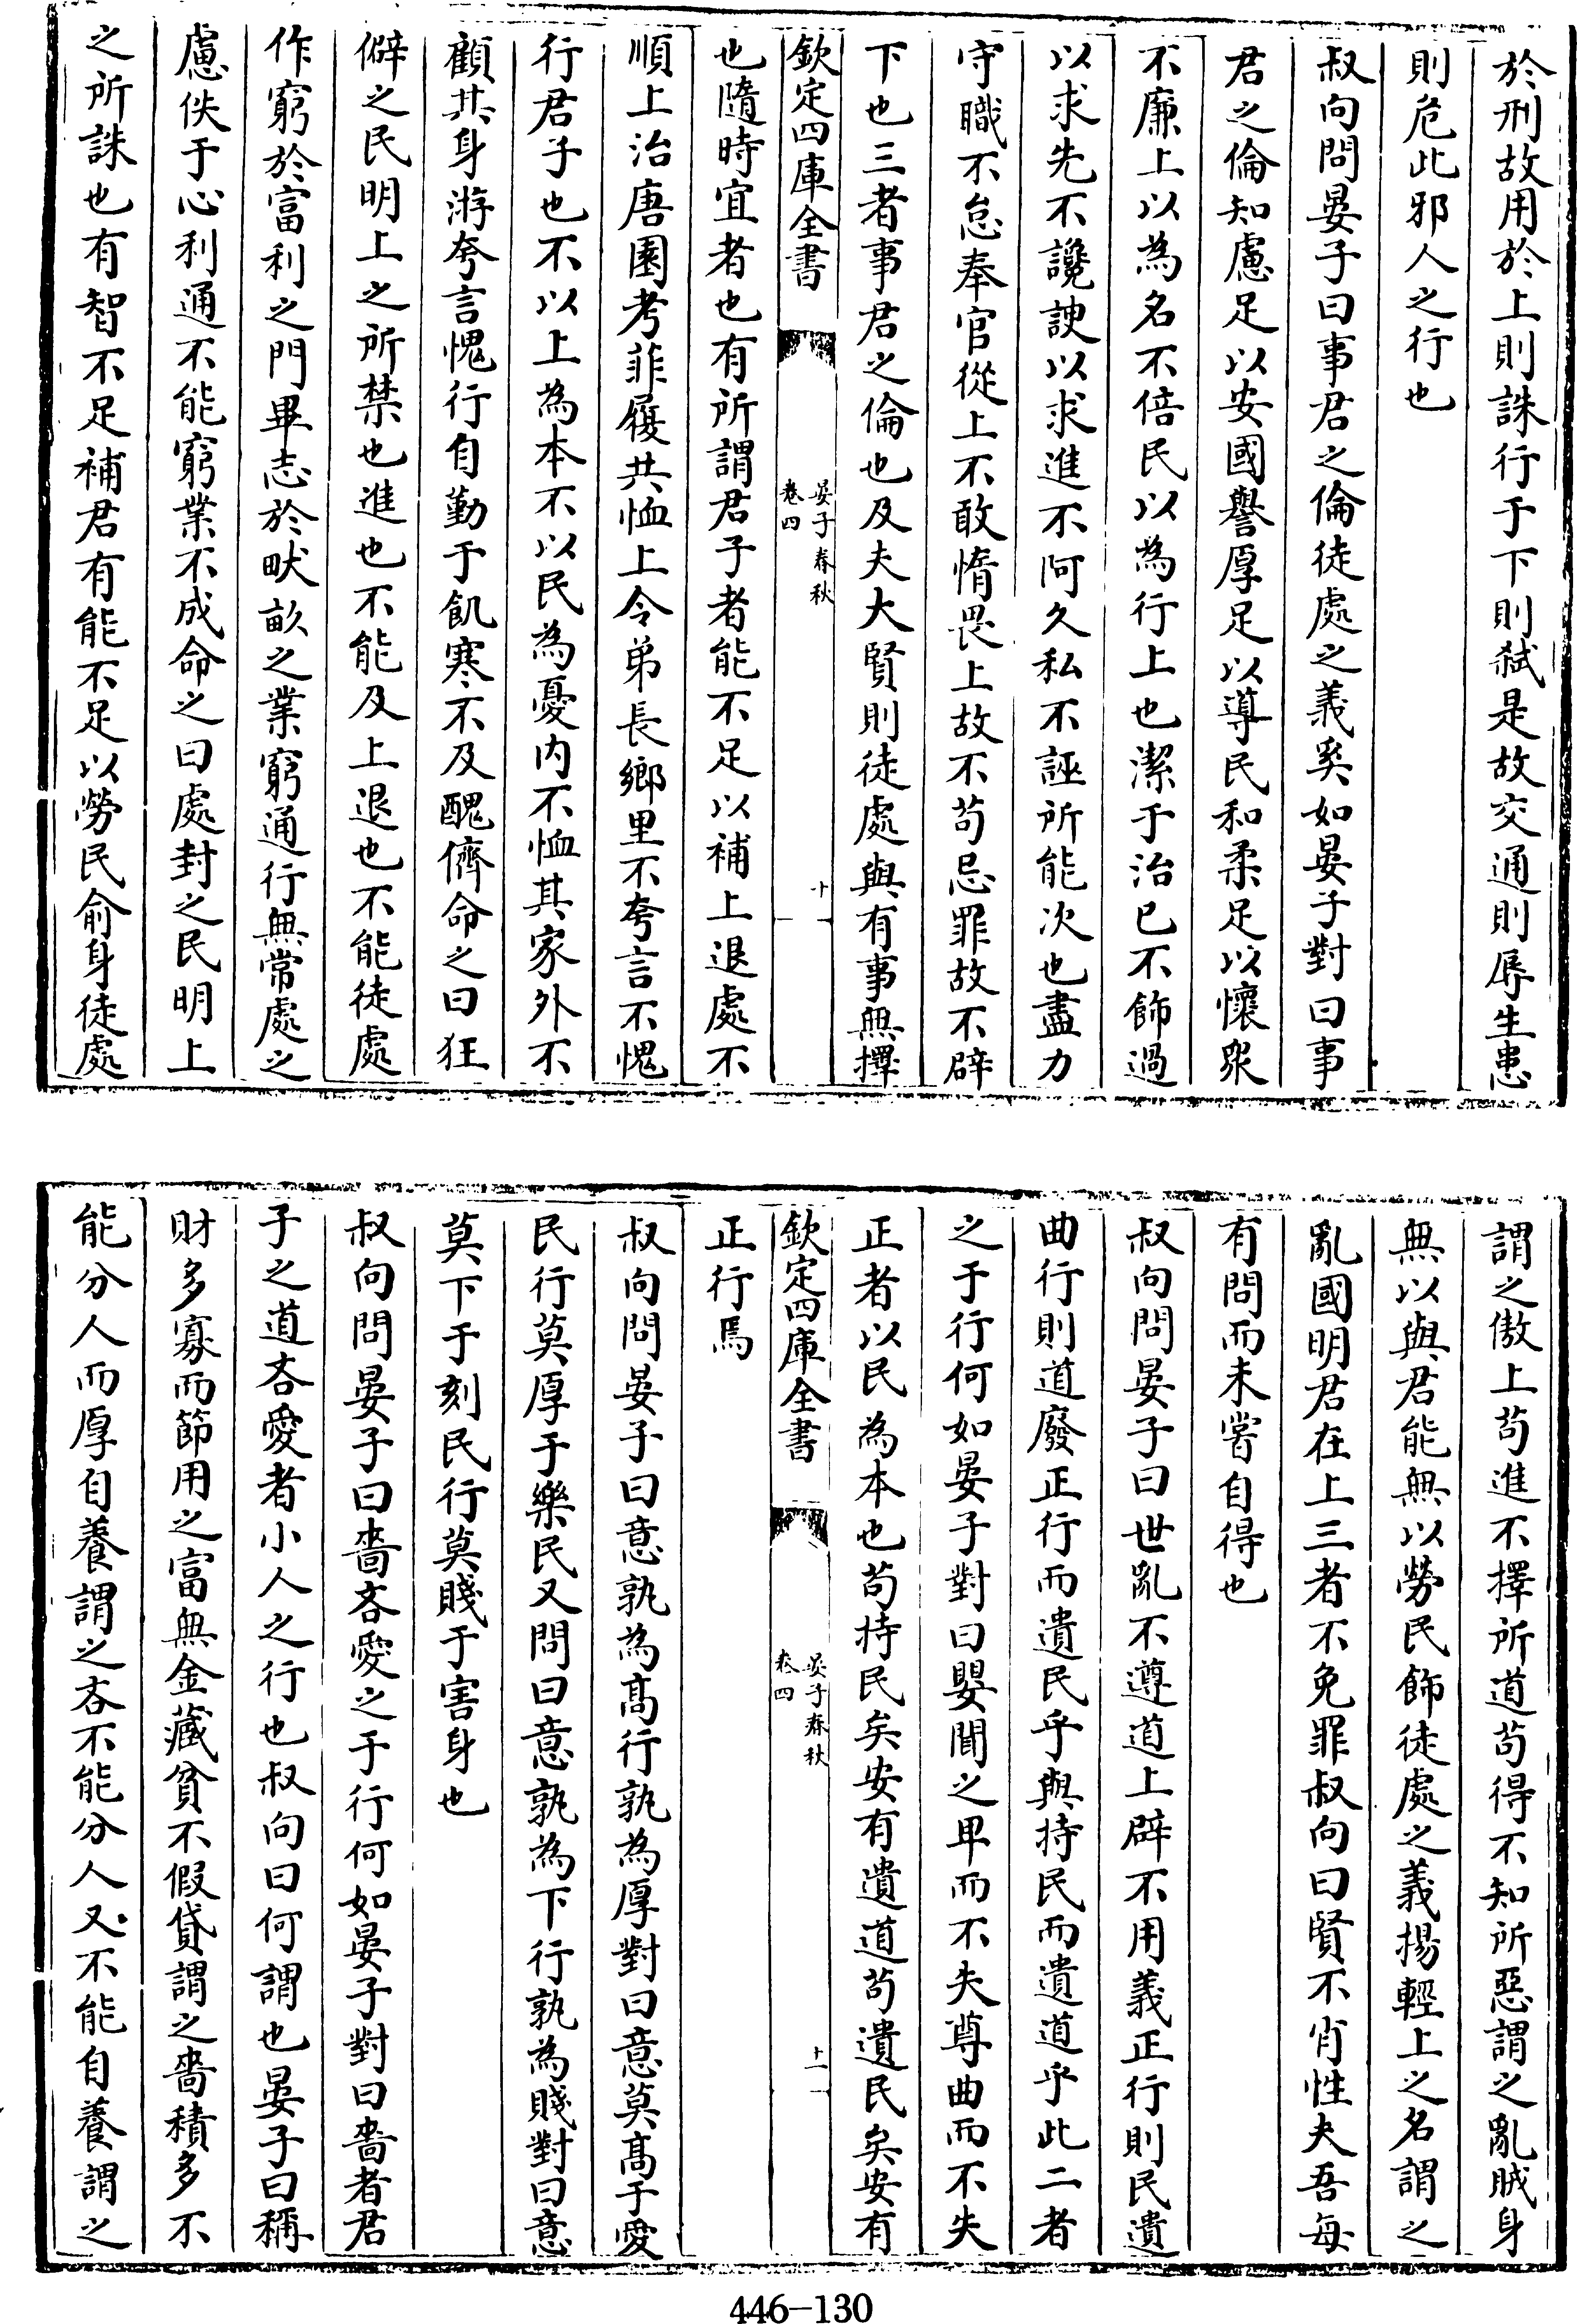 於刑故用於上則誅行于下則弑是故交通則辱生患
則危此邪人之行也
叔向問晏子曰事君之倫徒處之義奚如晏子對曰事
君之倫知慮足以安國譽厚足以導民和柔足以懷衆
不廉上以為名不倍民以為行上也潔于治已不飾過
以求先不讒諛以求進不阿久私不誣所能次也盡力
守職不怠奉官從上不敢惰畏上故不苟忌罪故不辟
下也三者事君之倫也及夫大賢則徒處與有事無擇
欽定四庫全書
晏子春秋
卷四
十一
也隨時宜者也有所謂君子者能不足以補上退處不
順上治唐園考菲履共恤上令弟長鄉里不夸言不愧
行君子也不以上為本不以民為憂内不恤其家外不
顧其身游夸言愧行自勤于飢寒不及醜儕命之曰狂
僻之民明上之所禁也進也不能及上退也不能徒處
作窮於富利之門畢志於畎畝之業窮通行無常處之
慮佚于心利通不能窮業不成命之曰處封之民明上
之所誅也有智不足補君有能不足以勞民俞身徒處
謂之傲上苟進不擇所道苟得不知所惡謂之亂賊身
無以與君能無以勞民飾徒處之義揚輕上之名謂之
亂國明君在上三者不免罪叔向曰賢不肖性夫吾每
有問而未嘗自得也
叔向問晏子曰世亂不遵道上辟不用義正行則民遺
曲行則道廢正行而遺民乎與持民而遺道乎此二者
之于行何如晏子對曰嬰聞之卑而不失尊曲而不失
正者以民為本也苟持民矣安有遺道苟遺民矣安有
欽定四庫全書
晏子春秋
卷四
十一
正行焉
叔向問晏子曰意孰為髙行孰為厚對曰意莫髙于愛
民行莫厚于樂民又問曰意孰為下行孰為賤對曰意
莫下于刻民行莫賤于害身也
叔向問晏子曰嗇吝愛之于行何如晏子對曰嗇者君
子之道吝愛者小人之行也叔向曰何謂也晏子曰稱
財多寡而節用之富無金藏貧不假貸謂之嗇積多不
能分人而厚自養謂之吝不能分人又不能自養謂之
446-130